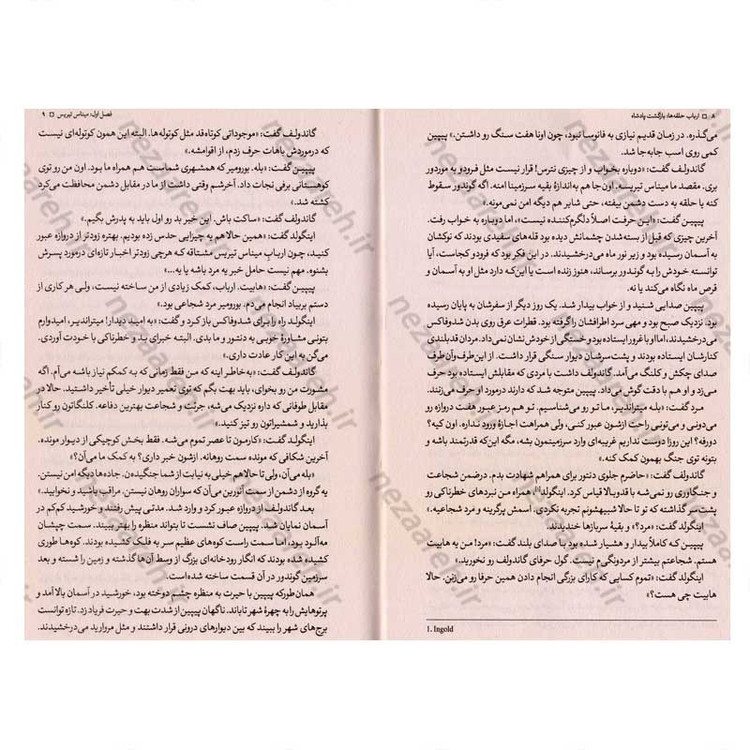 ۸ □ ارباب حلقه‌ها: بازگشت پادشاه
می‌گذره. در زمان قدیم نیازی به فانوسا نبود، چون اونا هفت سنگ رو داشتن.» پیپین
کمی روی اسب جابه‌جا شد.
گاندولف گفت: «دوباره بخواب و از چیزی نترس! قرار نیست مثل فرودو به موردور
بری. مقصد ما میناس تیریسه. اون‌جا هم به‌اندازهٔ بقیه سرزمینا امنه. اگه گوندور سقوط
کنه یا حلقه به دست دشمن بیفته، حتی شایر هم دیگه امن نمی‌مونه.»
پیپین گفت: «این حرفت اصلاً دلگرم‌کننده نیست»، اما دوباره به خواب رفت.
آخرین چیزی که قبل از بسته‌شدن چشمانش دیده بود قله‌های سفیدی بودند که نوکشان
به آسمان رسیده بود و زیر نور ماه می‌درخشیدند. در این فکر بود که فرودو کجاست، آیا
توانسته خودش را به گوندور برساند، هنوز زنده است یا این‌که دارد مثل او به آسمان و
قرص ماه نگاه می‌کند یا نه.
پیپین صدایی شنید و از خواب بیدار شد. یک روز دیگر از سفرشان به پایان رسیده
بود. نزدیک صبح بود و مهی سرد اطرافشان را گرفته بود. قطرات عرق روی بدن شدوفاکس
می‌درخشیدند، اما او با غرور ایستاده بود و خستگی از خودش نشان نمی‌داد. مردان قدبلندی
کنارشان ایستاده بودند و پشت‌سرشان دیوار سنگی قرار داشت. از این‌طرف و آن‌طرف
صدای چکش و کلنگ می‌آمد. گاندولف داشت با مردی که مقابلش ایستاده بود حرف
می‌زد و او هم با دقت گوش می‌داد. پیپین متوجه شد که دارند درمورد او حرف می‌زنند.
مرد گفت: «بله میتراندیر، ما تو رو می‌شناسیم. تو هم رمز عبور هفت دروازه رو
می‌دونی و می‌تونی راحت ازشون عبور کنی، ولی همراهت اجازهٔ ورود نداره. اون کیه؟
دورفه؟ این روزا دوست نداریم غریبه‌ای وارد سرزمینمون بشه، مگه این‌که قدرتمند باشه و
بتونه توی جنگ بهمون کمک کنه.»
گاندولف گفت: «حاضرم جلوی دنتور برای همراهم شهادت بدم. درضمن شجاعت
و جنگاوری رو نمی‌شه با قدوبالا قیاس کرد. اینگولد(۱)، همراه من نبردهای خطرناکی رو
پشت‌سر گذاشته که تو تا حالا شبیهشونم تجربه نکردی. اسمش پرگرینه و مرد شجاعیه.»
اینگولد گفت: «مرد؟» و بقیهٔ سربازها خندیدند.
پیپین که کاملاً بیدار و هشیار شده بود با صدای بلند گفت: «مرد! من یه هابیت
هستم. شجاعتم بیشتر از مردونگی‌م نیست. گول حرفای گاندولف رو نخورید.»
اینگولد گفت: «تموم کسایی که کارای بزرگی انجام دادن همین حرفا رو می‌زنن. حالا
هابیت چی هست؟»
1. Ingold
فصل اول: میناس تیریس □ ۹
گاندولف گفت: «موجوداتی کوتاه‌قد مثل کوتوله‌ها. البته این همون کوتوله‌ای نیست
که درموردش باهات حرف زدم، از اقوامشه.»
پیپین گفت: «بله. بورومیر که همشهری شماست هم همراه ما بود. اون من رو توی
کوهستانی برفی نجات داد. آخرشم وقتی داشت از ما در مقابل دشمن محافظت می‌کرد
کشته شد.»
گاندولف گفت: «ساکت باش. این خبر بد رو اول باید به پدرش بگیم.»
اینگولد گفت: «همین حالاهم یه چیزایی حدس زده بودیم. بهتره زودتر از دروازه عبور
کنید، چون ارباب میناس تیریس مشتاقه که هرچی زودتر اخبار تازه‌ای درمورد پسرش
بشنوه. مهم نیست حامل خبر یه مرد باشه یا یه...»
پیپین گفت: «هابیت. ارباب، کمک زیادی از من ساخته نیست، ولی هر کاری از
دستم بربیاد انجام می‌دم. بورومیر مرد شجاعی بود.»
اینگولد راه را برای شدوفاکس باز کرد و گفت: «به امید دیدار! میتراندیر، امیدوارم
بتونی مشاورهٔ خوبی به دنتور و ما بدی. البته خبرای بد و خطرناکی با خودت آوردی.
می‌گن به این کار عادت داری.»
گاندولف گفت: «به‌خاطر اینه که من فقط زمانی که به کمکم نیاز باشه می‌آم. اگه
مشورت من رو بخوای، باید بهت بگم که توی تعمیر دیوار خیلی تأخیر داشتید. حالا در
مقابل طوفانی که داره نزدیک می‌شه، جرئت و شجاعت بهترین دفاعه. کلنگاتون رو کنار
بذارید و شمشیراتون رو تیز کنید.»
اینگولد گفت: «کارمون تا عصر تموم می‌شه. فقط بخش کوچیکی از دیوار مونده.
آخرین شکافی که مونده سمت روهانه. ازشون خبر داری؟ به کمک ما می‌آن؟»
«بله می‌آن، ولی تا حالاهم خیلی به نیابت از شما جنگیدن. جاده‌ها دیگه امن نیستن.
یه گروه از دشمن از سمت آنورین می‌آن که سواران روهان نیستن. مراقب باشید و نخوابید.»
بعد گاندولف از دروازه عبور کرد و وارد شد. مدتی پیش رفتند و خورشید کم‌کم در
آسمان نمایان شد. پیپین صاف نشست تا بتواند منظره را بهتر ببیند. سمت چپشان
مه‌آلود بود، اما سمت راست کوه‌های عظیم سر به فلک کشیده بودند. کوه‌ها طوری
کشیده شده بودند که انگار رودخانه‌ای بزرگ از وسط آن‌ها گذشته و زمین را شسته و بعد
سرزمین گوندور در آن قسمت ساخته شده‌است.
همان‌طورکه پیپین با حیرت به منظره چشم دوخته بود، خورشید در آسمان بالا آمد و
پرتوهایش را به چهرهٔ شهر تاباند. ناگهان پیپین از شدت بهت و حیرت فریاد زد. تازه توانست
برج‌های شهر را ببیند که بین دیوارهای درونی قرار داشتند و مثل مروارید می‌درخشیدند.
nezaareh.ir